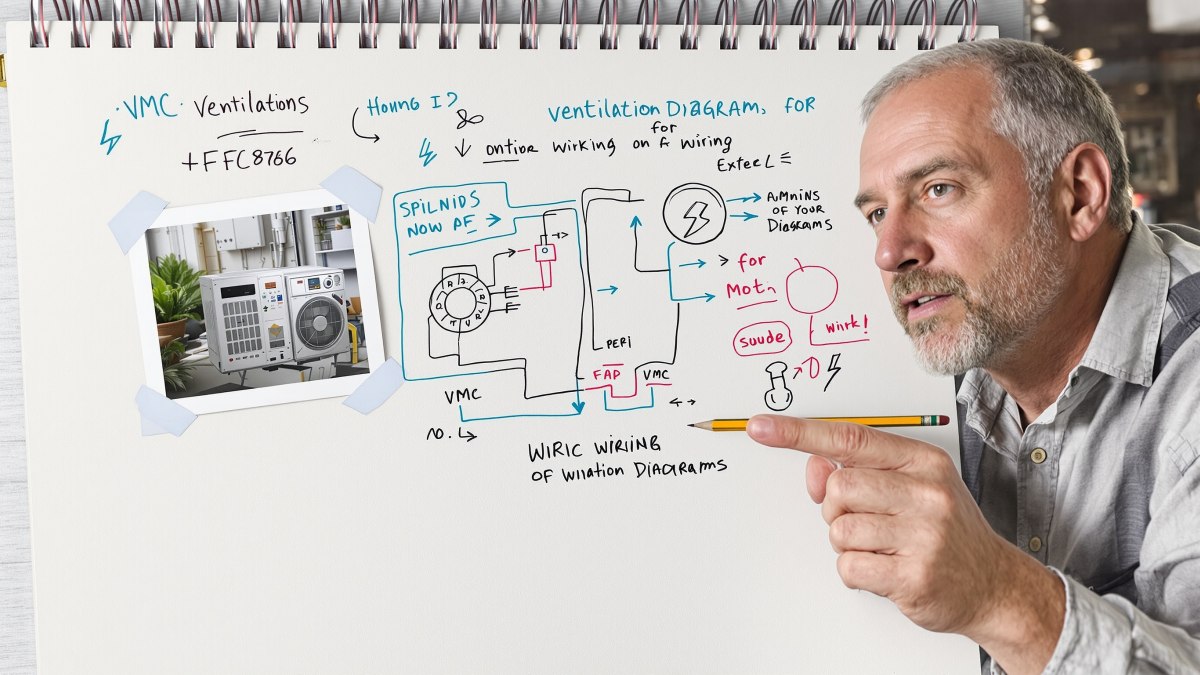 VMC Ventilations
+FFC8766
Houng I?
ventilation DIAGRAM, FOR
for
ontior wirking on A wiring
Exteel
SPILNIDS
NOW AF
AMNINS
OF YOUR
DIAGRAMS
for
Mot
soude
wirk!
PERI
FAP
VMC
VMC
NO.
WIRIC WIRING
OF